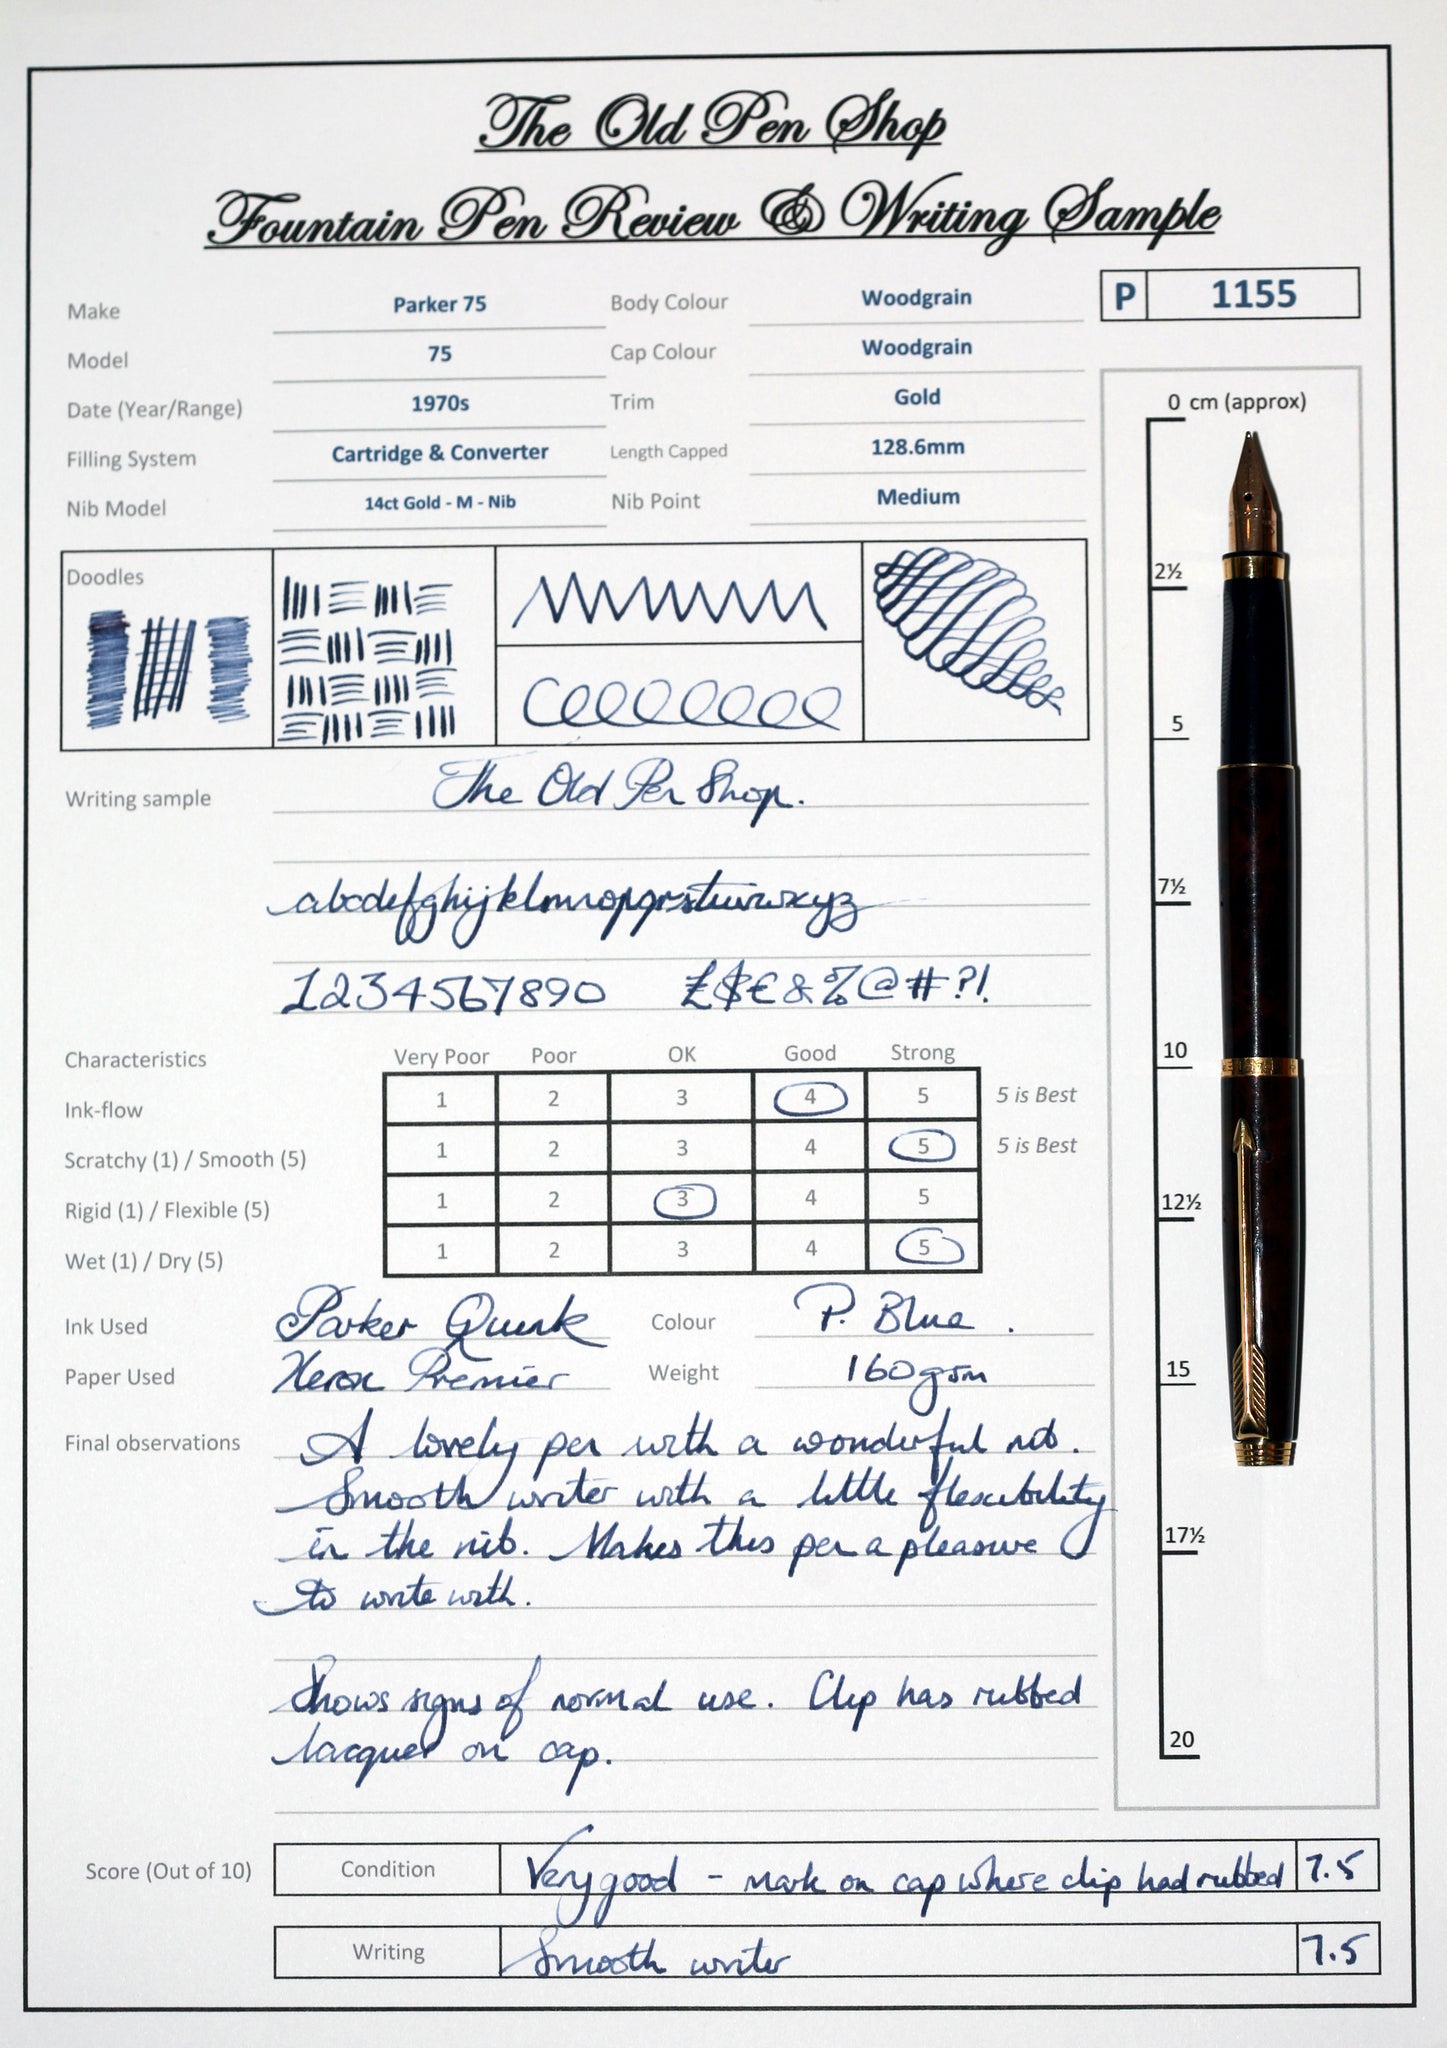 The Old Pen Shop
Fountain Pen Review & Writing Sample
Make Parker 75 Body Colour Woodgrain P 1155
Model 75 Cap Colour Woodgrain
Date (Year/Range) 1970s Trim Gold
Filling System Cartridge & Converter Length Capped 128.6mm
Nib Model 14ct Gold - M - Nib Nib Point Medium
0 cm (approx)
2½
5
7½
10
12½
15
17½
20
Doodles
Writing sample The Old Pen Shop.
abcdefghijklmnopqrstuvwxyz
1234567890 £$€&%@#?!
Characteristics Very Poor Poor OK Good Strong
Ink-flow 1 2 3 4 5 5 is Best
Scratchy (1) / Smooth (5) 1 2 3 4 5 5 is Best
Rigid (1) / Flexible (5) 1 2 3 4 5
Wet (1) / Dry (5) 1 2 3 4 5
Ink Used Parker Quink Colour P. Blue .
Paper Used Xerox Premier Weight 160gsm
Final observations A lovely pen with a wonderful nib.
Smooth writer with a little flexibility
in the nib. Makes this pen a pleasure
to write with.
Shows signs of normal use. Clip has rubbed
lacquer on cap.
Score (Out of 10) Condition Very good - mark on cap where clip had rubbed 7.5
Writing Smooth writer 7.5